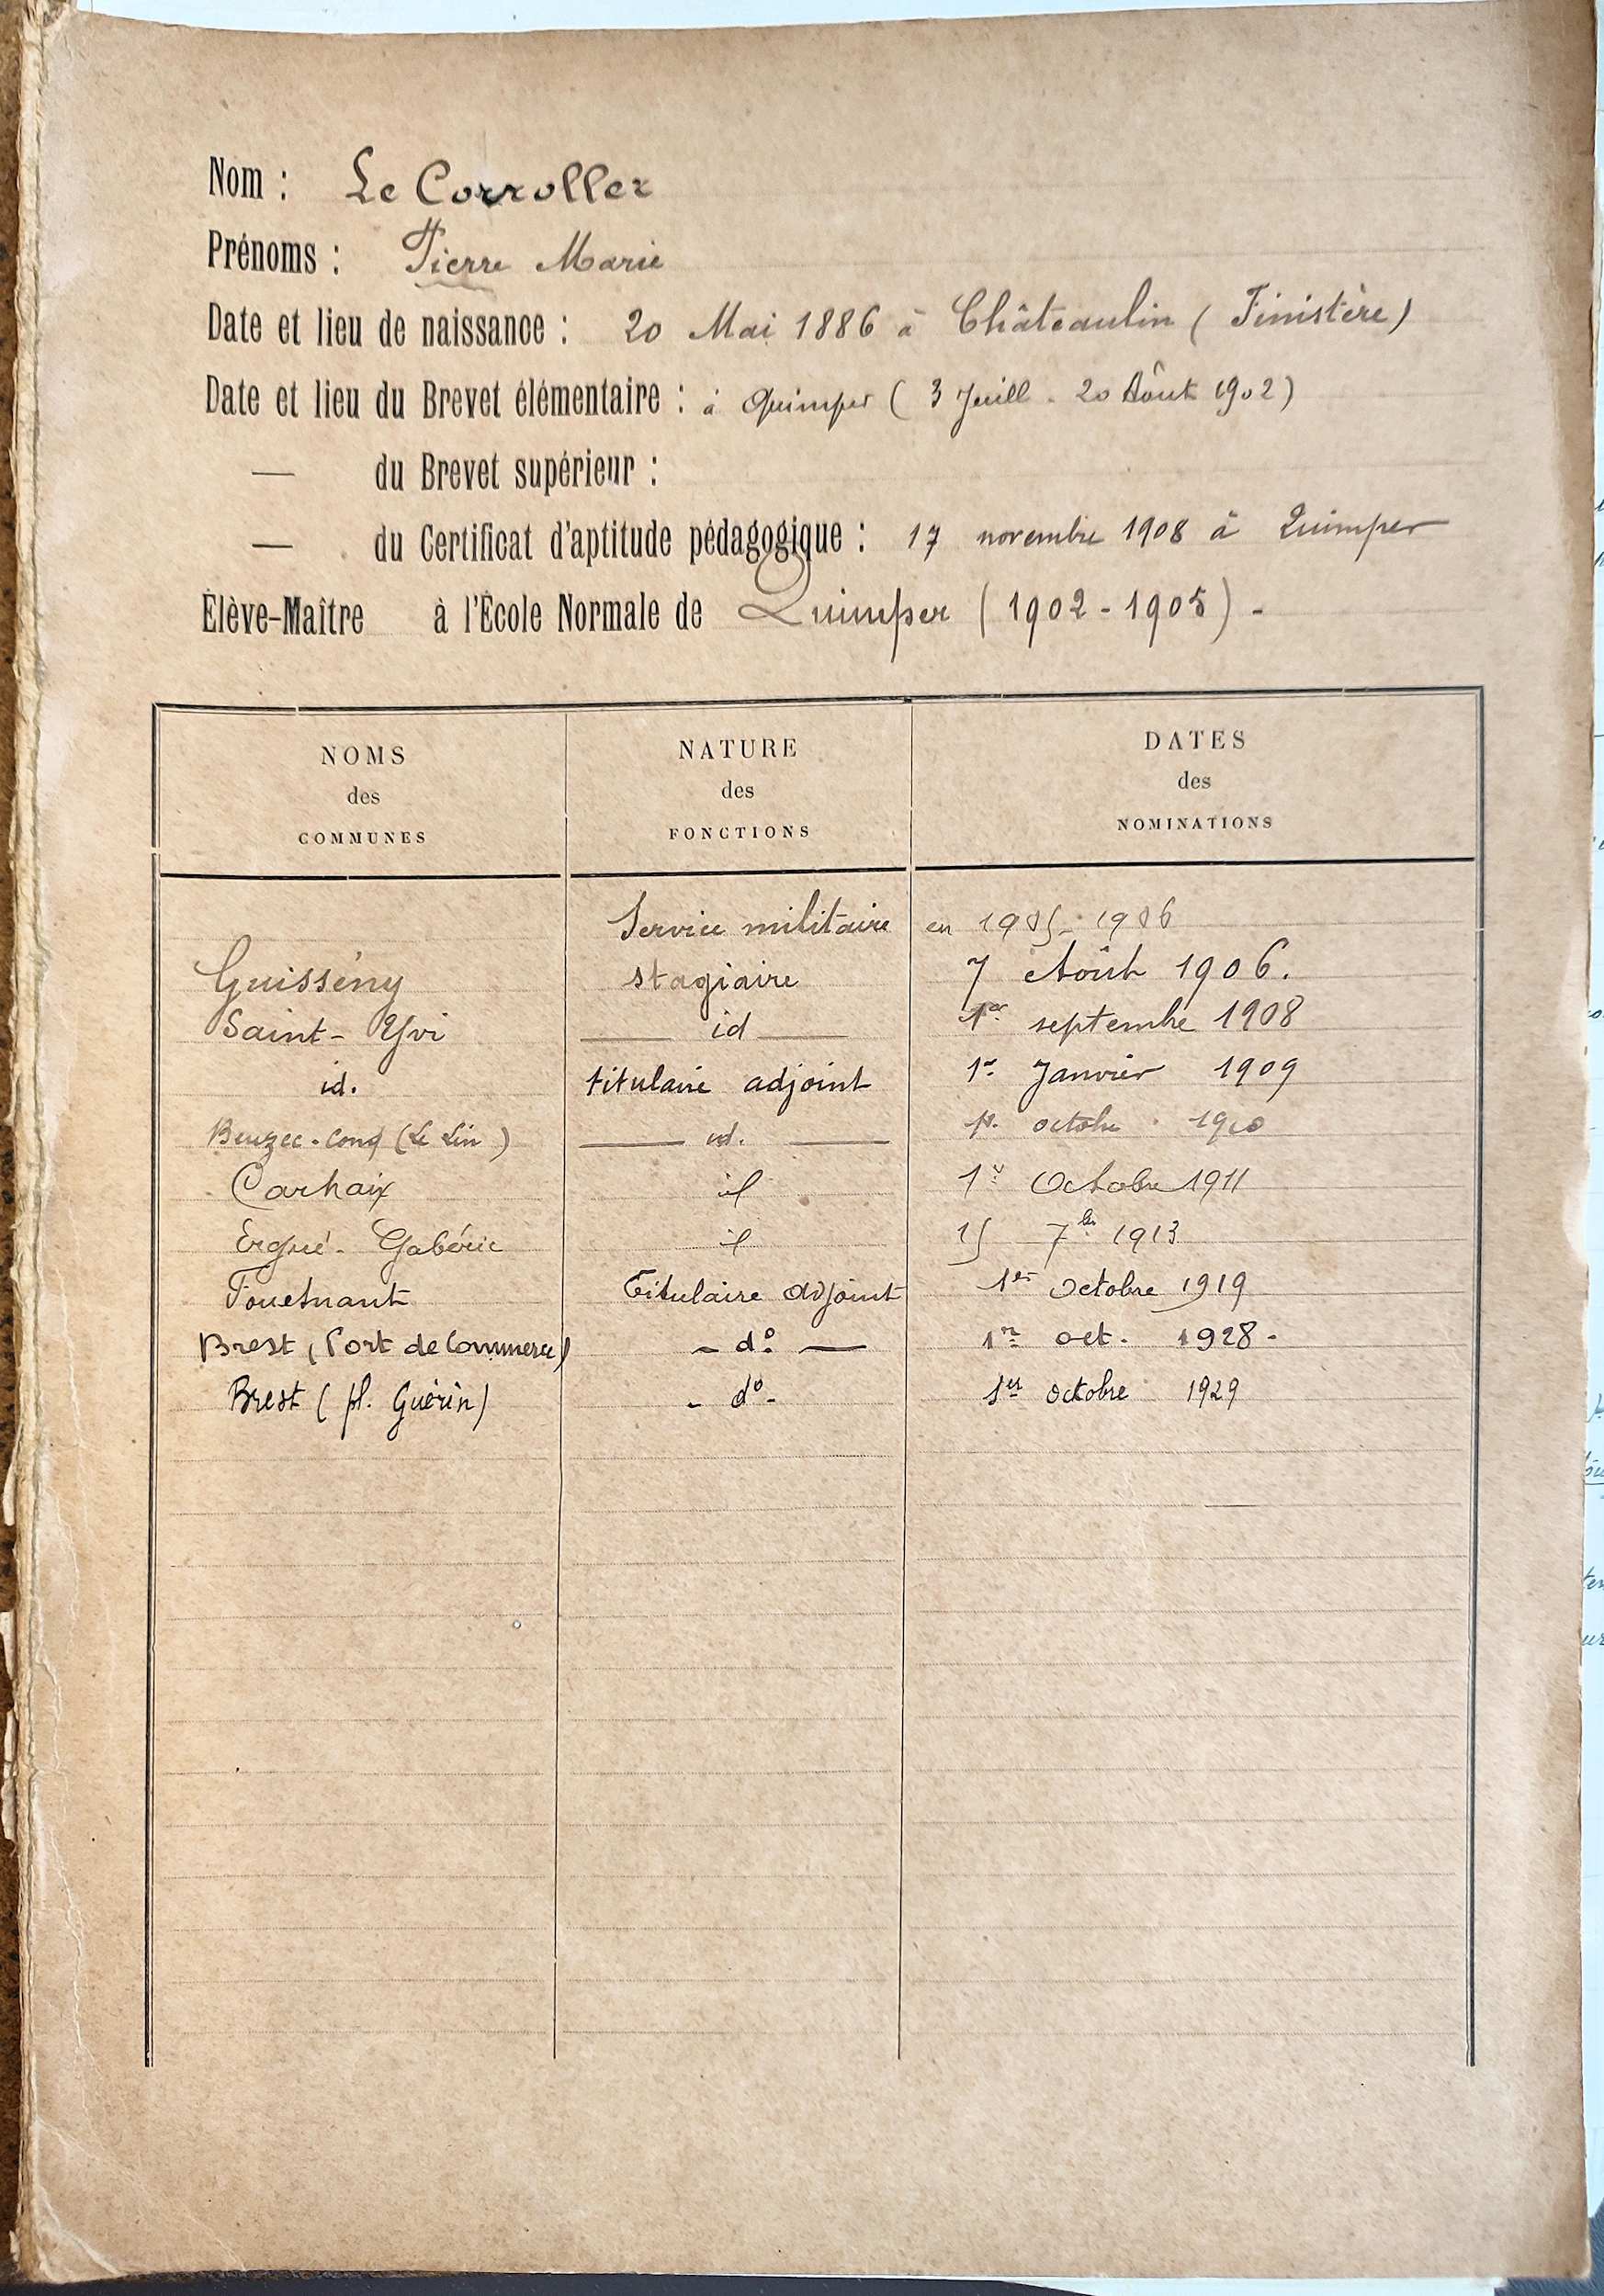 Nom : Le Corroller
Prénoms : Pierre Marie
Date et lieu de naissance : 20 Mai 1886 à Châteaulin ( Finistère )
Date et lieu du Brevet élémentaire : à Quimper ( 3 Juill - 20 Août 1902 )
— du Brevet supérieur :
— du Certificat d'aptitude pédagogique : 17 novembre 1908 à Quimper
Élève-Maître à l'École Normale de Quimper ( 1902 - 1905 ) -
NOMS NATURE DATES
des des des
COMMUNES FONCTIONS NOMINATIONS
Service militaire en 1905 - 1906
Guissény stagiaire 7 Août 1906.
Saint-Yvi — id — 1er septembre 1908
id. titulaire adjoint 1er Janvier 1909
Beuzec-Conq (Le Lin) — id. — 1er octobre 1910
Carhaix id 1er Octobre 1911
Ergué-Gabéric id 15 7bre 1913
Fouesnant Titulaire adjoint 1er Octobre 1919
Brest (Port de Commerce) - do — 1er oct. 1928 -
Brest ( pl. Guérin) - do - 1er octobre 1929